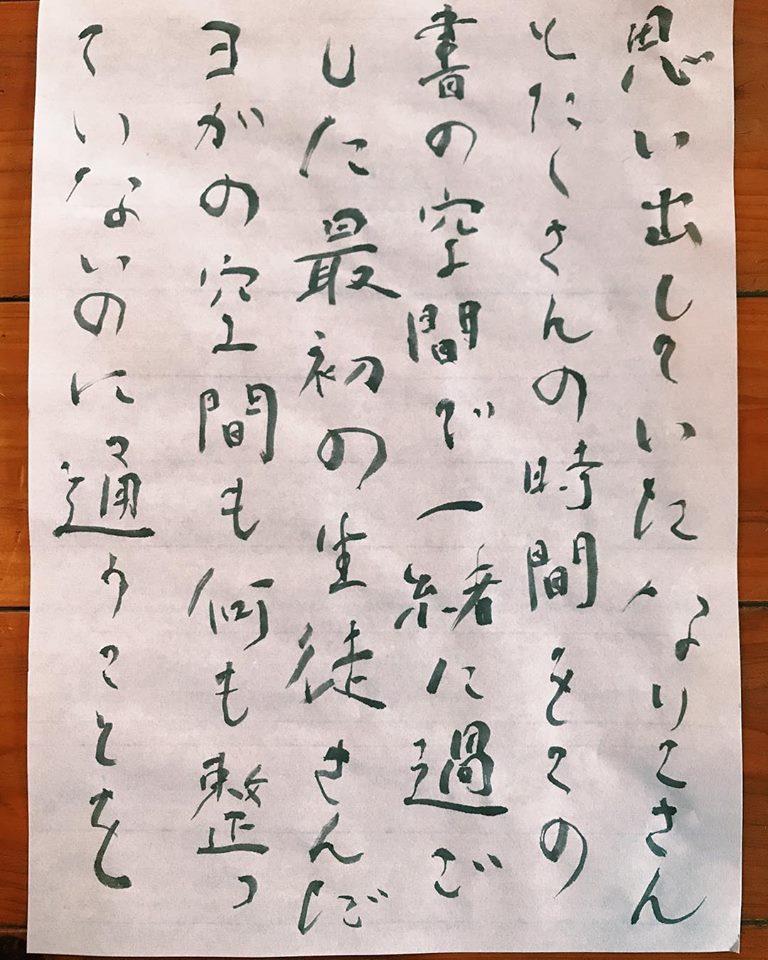 思い出していたなりこさん
とたくさんの時間をこの
書の空間で一緒に過ご
した最初の生徒さんだ
ヨガの空間も何も整っ
ていないのに通うことを